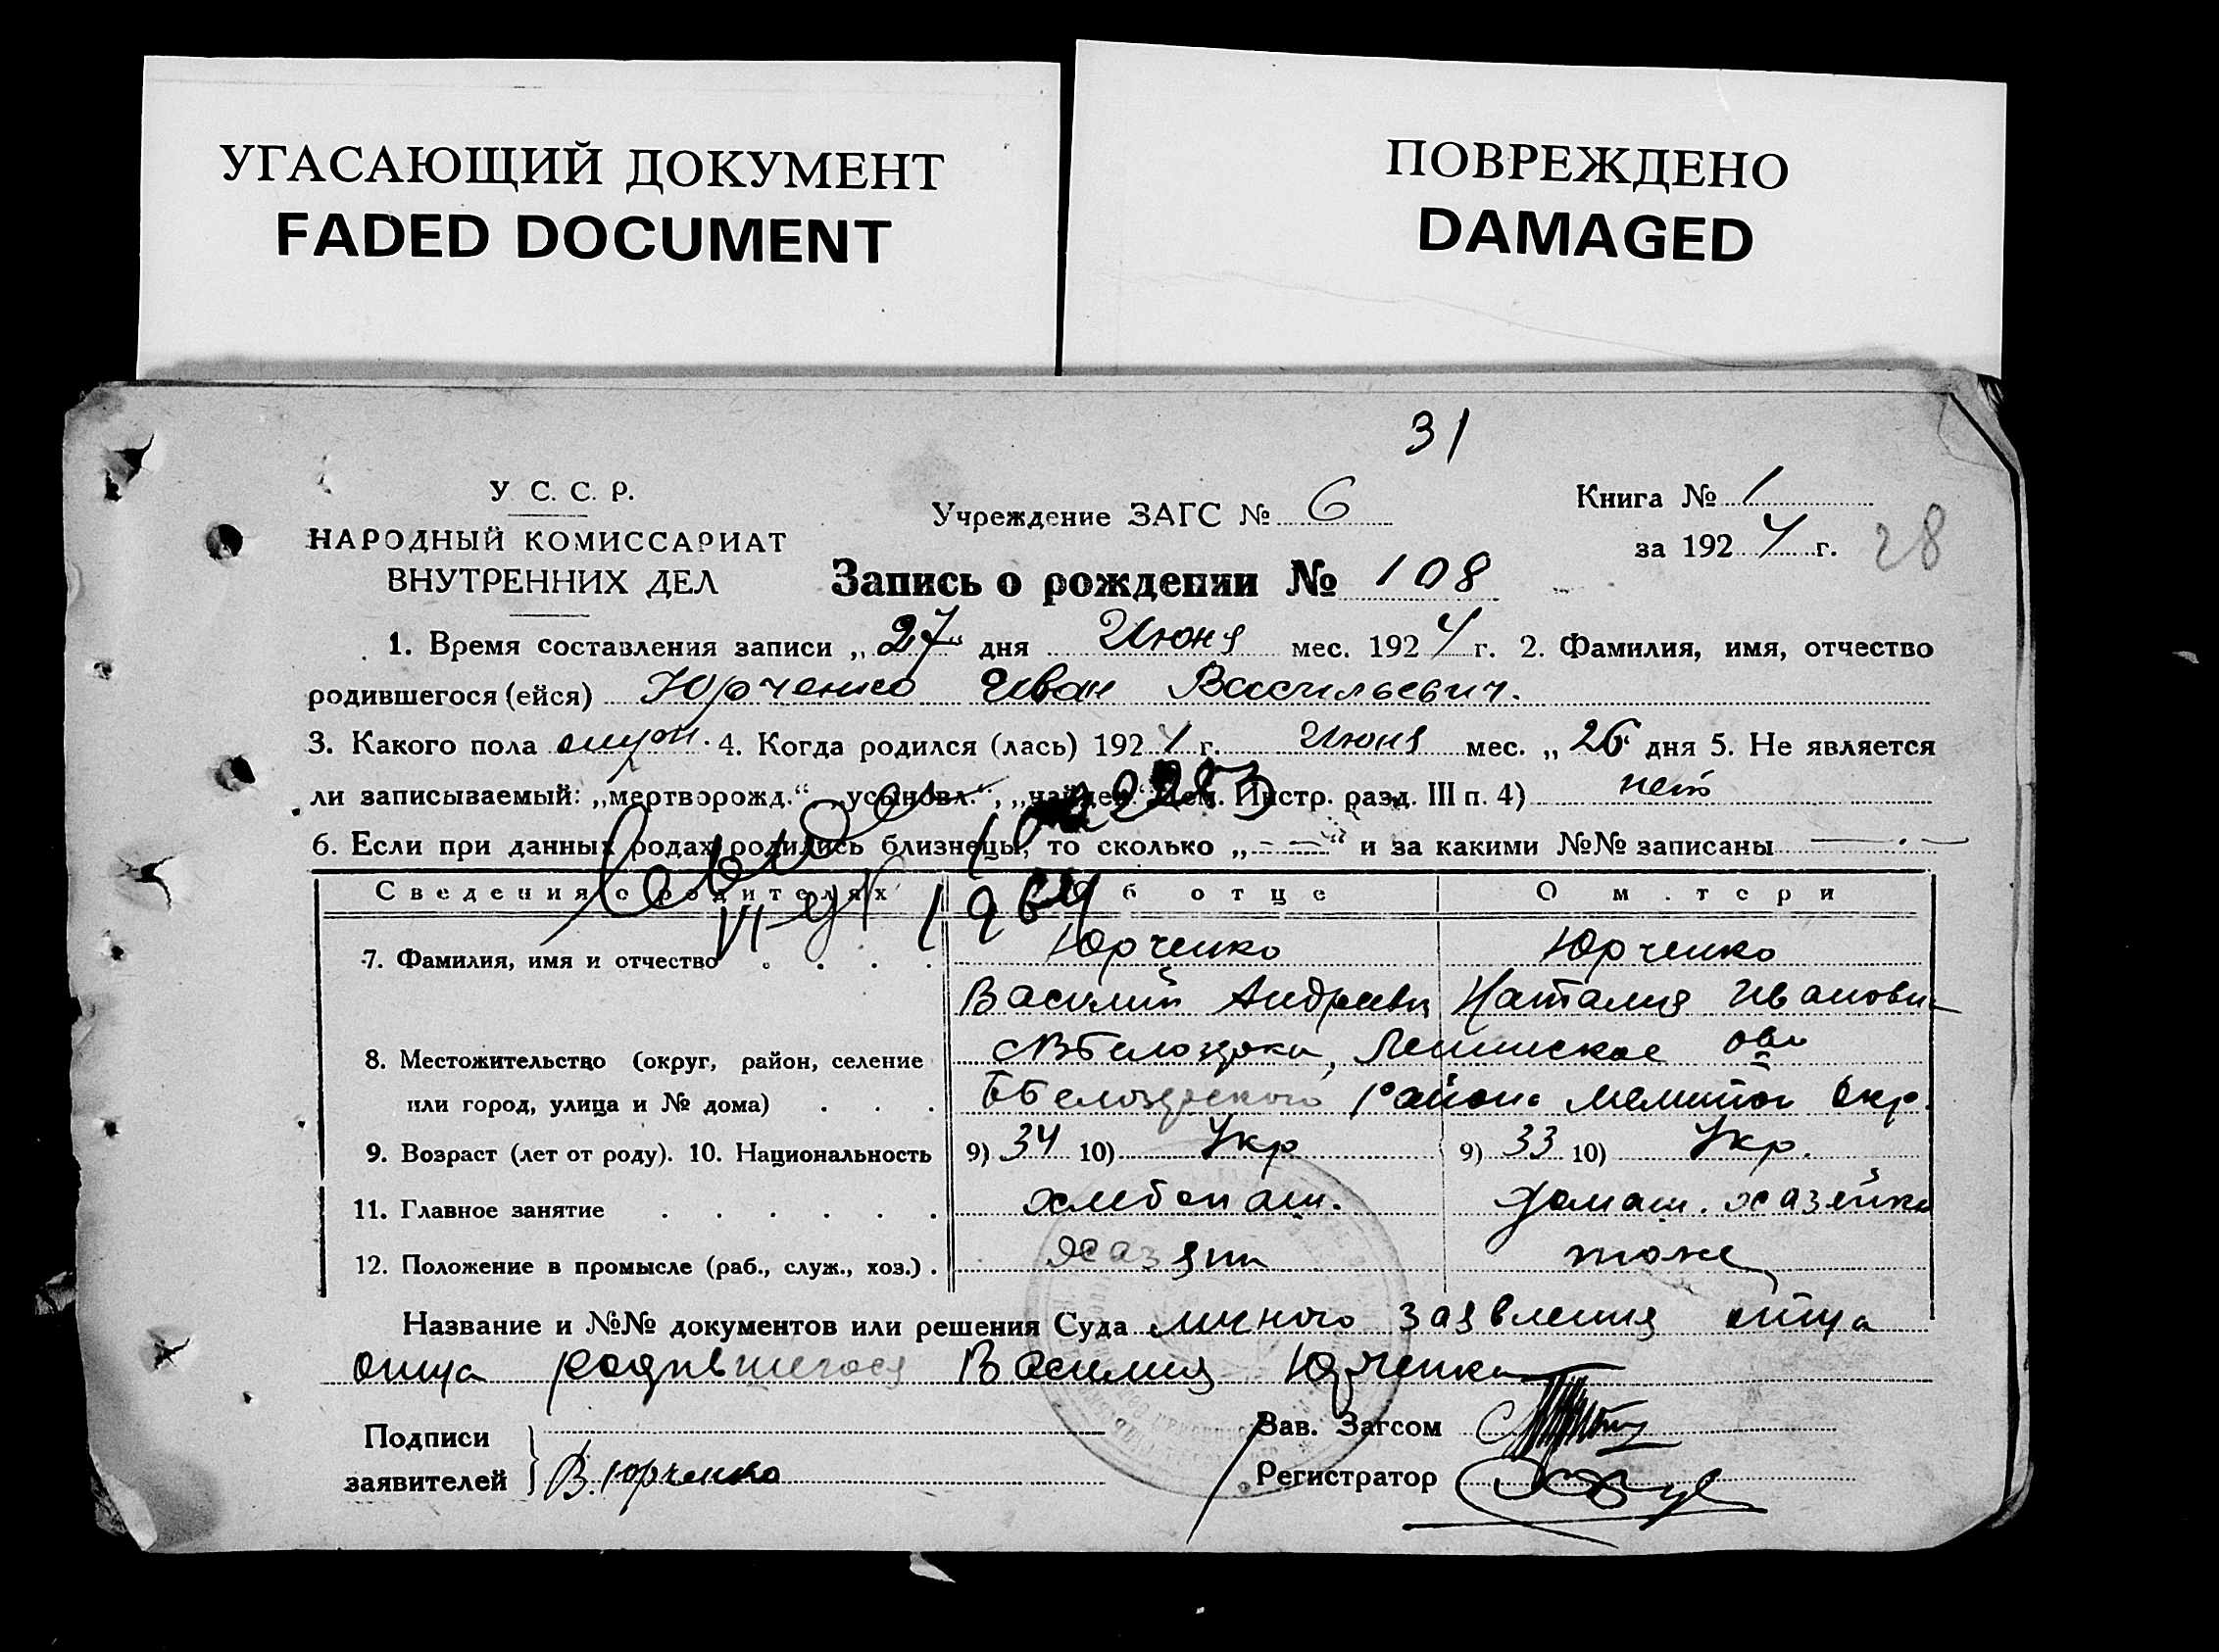 УГАСАЮЩИЙ ДОКУМЕНТ
FADED DOCUMENT
ПОВРЕЖДЕНО
DAMAGED
31
У С. С. Р.
НАРОДНЫЙ КОМИССАРИАТ
ВНУТРЕННИХ ДЕЛ
Учреждение ЗАГС № 6
Книга № 1
за 192 4 г. 28
Запись о рождении № 108
1. Время составления записи „27“ дня Июня мес. 1924 г. 2. Фамилия, имя, отчество
родившегося (ейся) Юрченко Иван Васильевич.
3. Какого пола муж. 4. Когда родился (лась) 192 г. Июня мес. „26“ дня 5. Не является
ли записываемый: „мертворожд.“ „усыновл.“, „найден.“ Инстр. разд. III п. 4) нет
6. Если при данных родах родились близнецы, то сколько „— —“ и за какими №№ записаны —
1964
Сведения о родителях Об отце О м.тери
7. Фамилия, имя и отчество . . . . Юрченко Юрченко
Василий Андреевич Наталия Ивановн
8. Местожительство (округ, район, селение
или город, улица и № дома) . . . района Мелитоп Окр.
9. Возраст (лет от роду). 10. Национальность 9) 34 10) Укр 9) 33 10) Укр.
11. Главное занятие . . . . . . хлебопаш. домаш. хазяйка
12. Положение в промысле (раб., служ., хоз.) . Хазяин тоже
Название и №№ документов или решения Суда личного заявления отца
отца родившегося Василия Юрченка
Подписи
заявителей } В. Юрченко
Вав. Загсом
Регистратор